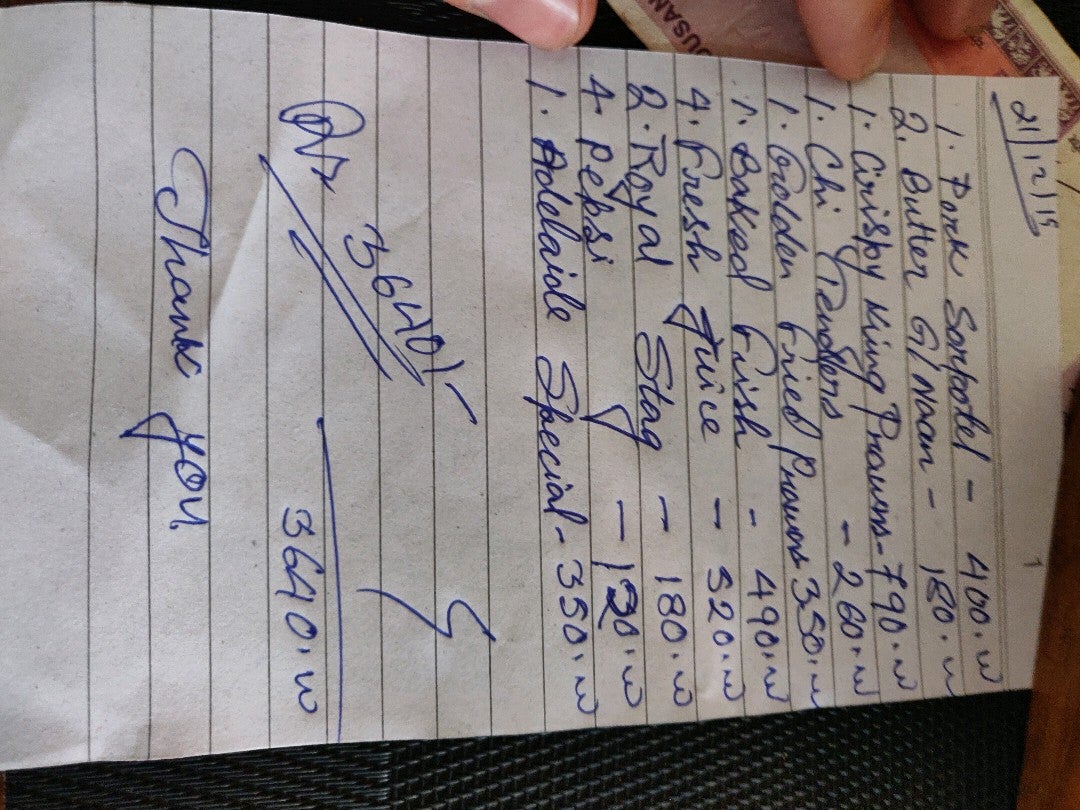 1
1. Pork Sorpotel - 400.00
2. Butter G/Naan - 180.00
1. Crispy King Prawns - 790.00
1. Chi Tendlers - 260.00
1. Golden Fried Prawns 350.00
1. Baked Fish - 490.00
4. Fresh Juice - 520.00
2. Royal Stag - 180.00
4. Pepsi - 120.00
1. Addaide Special - 350.00
3640/-
3640.00
Thank you
OUSAN